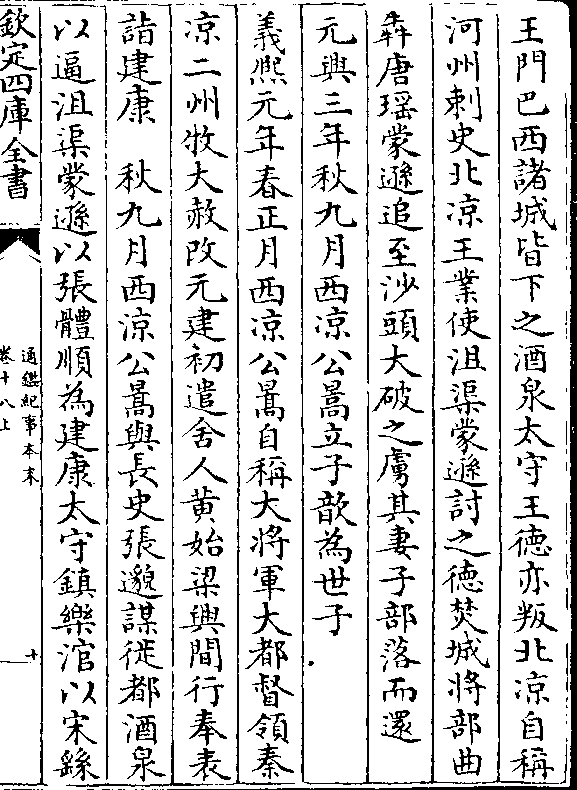 王門巴西諸城皆下之酒泉太守王德亦叛北凉自稱
河州刺史北凉王業使沮渠蒙遜討之德焚城將部曲
犇唐瑶蒙遜追至沙頭大破之虜其妻子部落而還
元興三年秋九月西凉公暠立子歆為世子
義熙元年春正月西凉公暠自稱大將軍大都督領秦
凉二州牧大赦改元建初遣舍人黄始梁興間行奉表
詣建康　秋九月西凉公暠與長史張邈謀徙都酒泉
以逼沮渠蒙遜以張體順為建康太守鎮樂涫以宋繇
欽定四庫全書
通鑑紀事本末
卷十八上
十